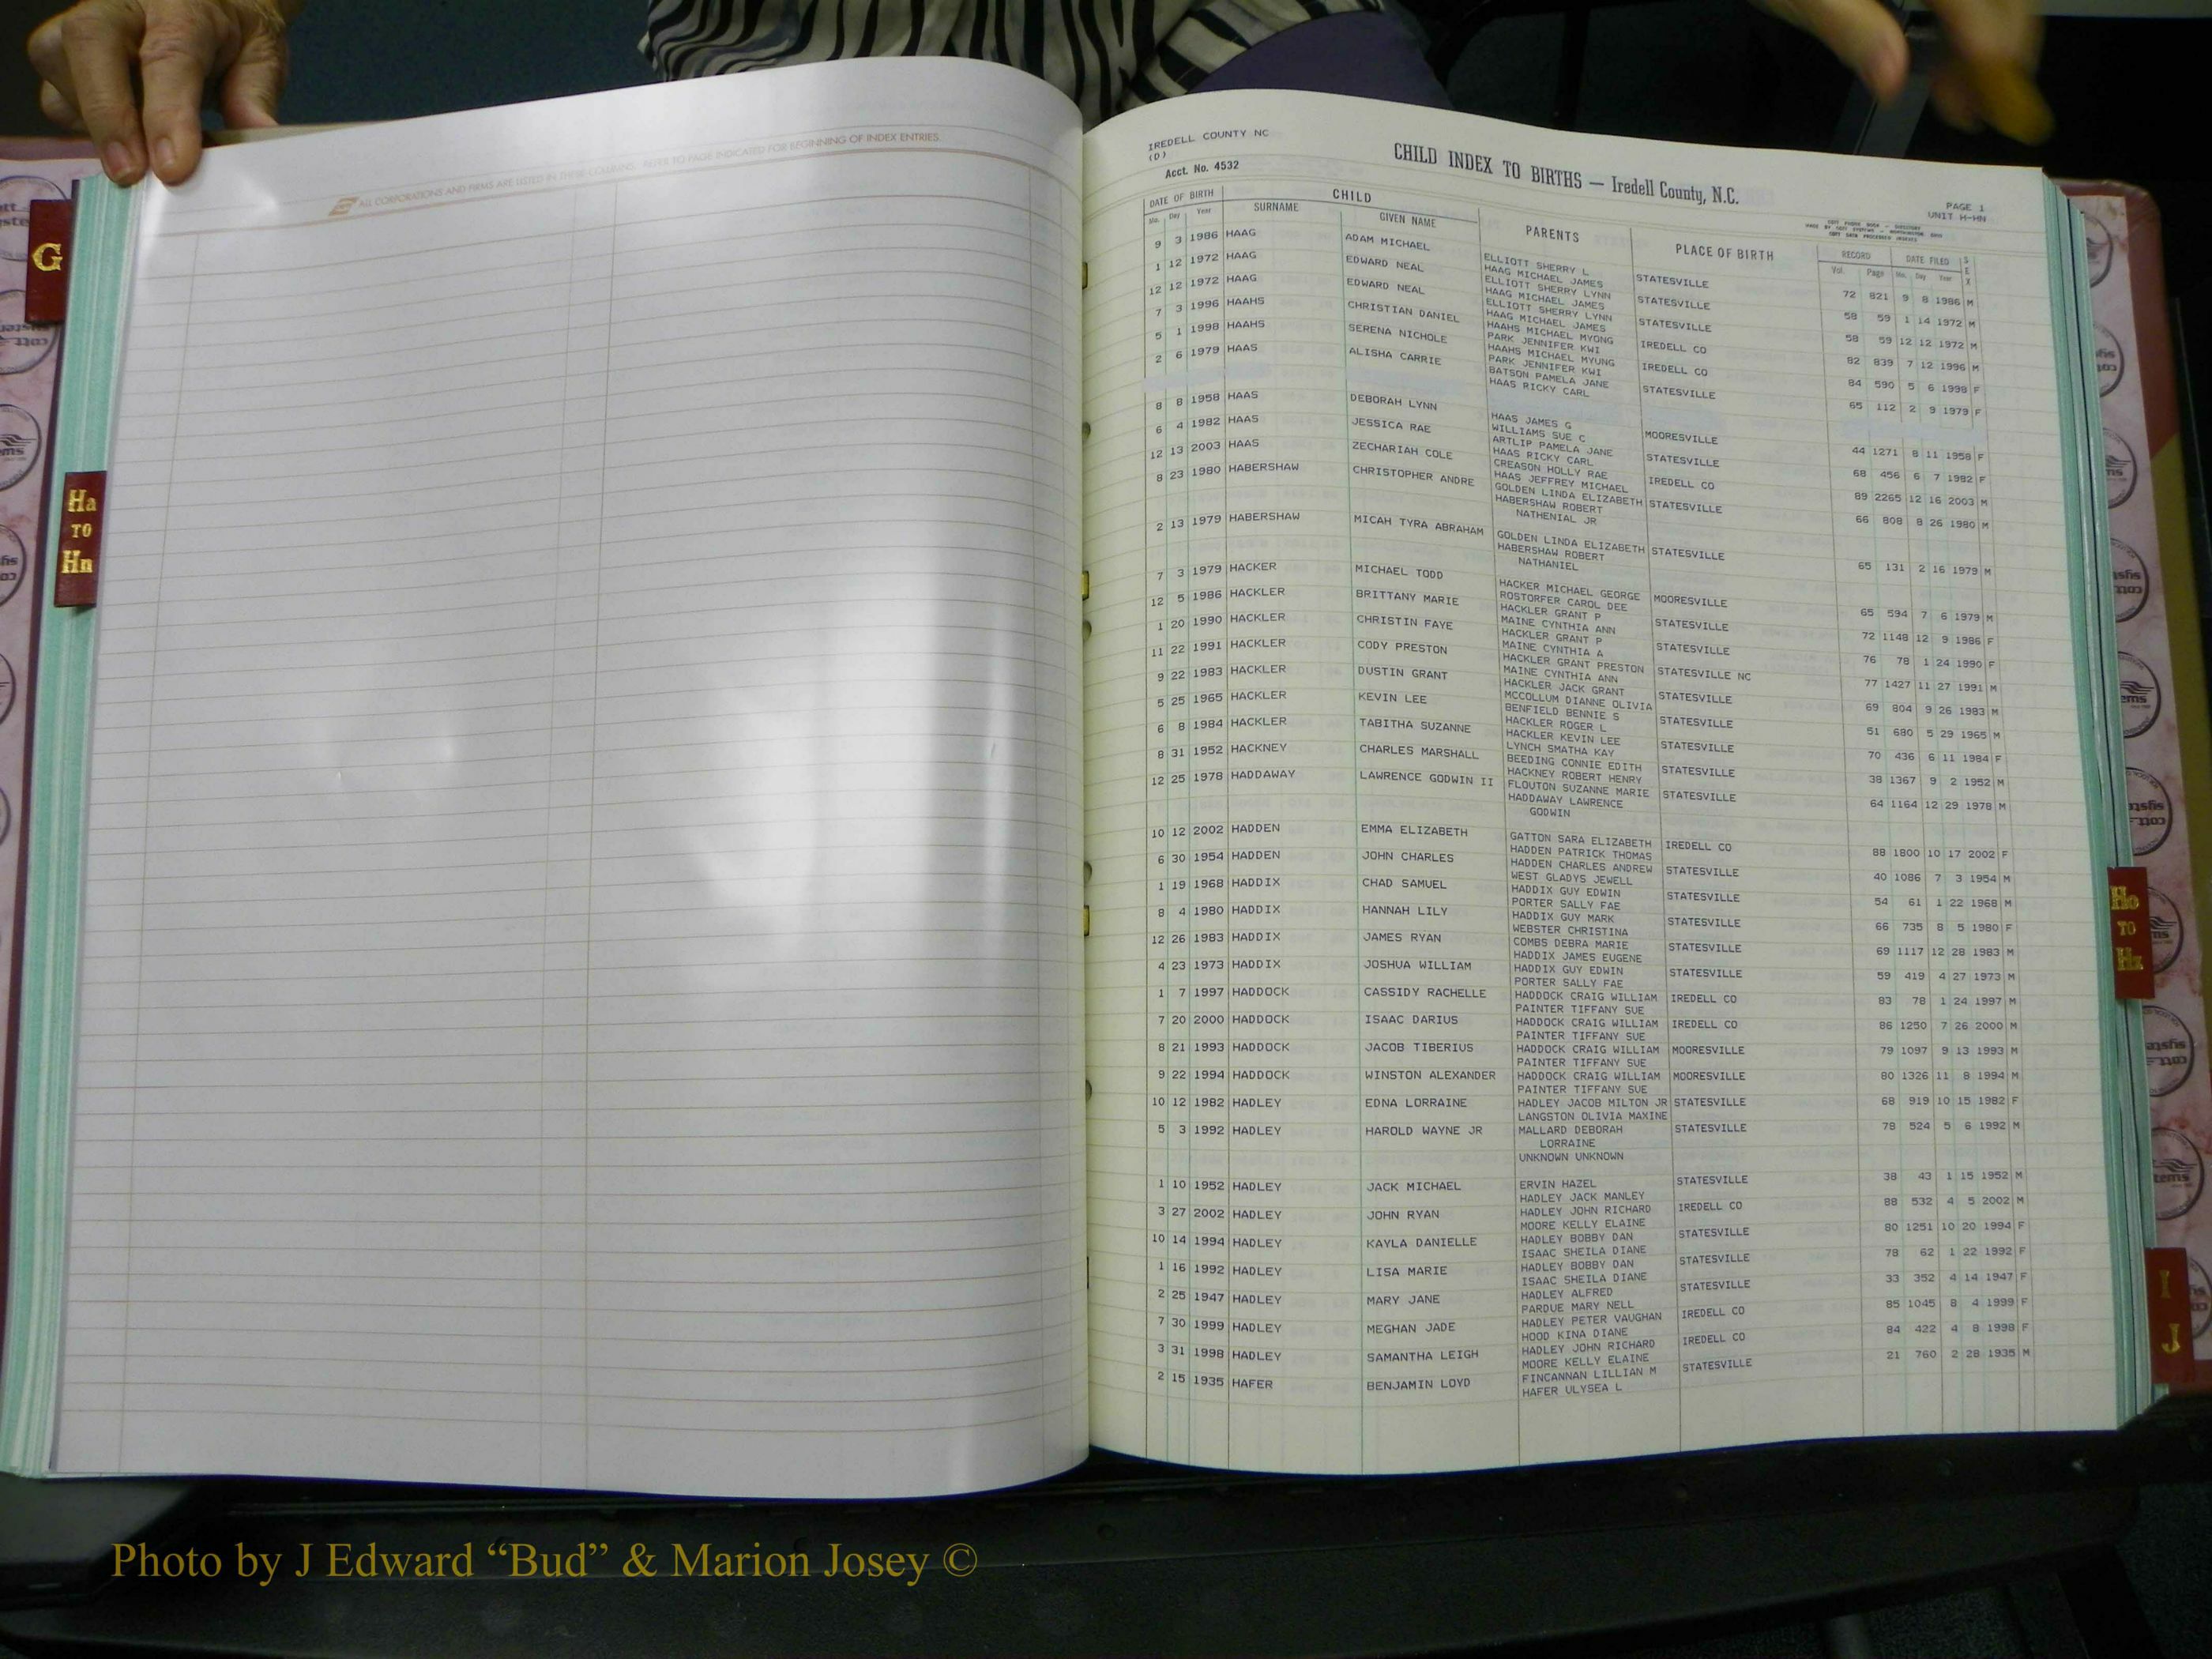 ALL CORPORATIONS AND FIRMS ARE LISTED IN THESE COLUMNS. REFER TO PAGE INDICATED FOR BEGINNING OF INDEX ENTRIES.
G
Ha
TO
Hn
IREDELL COUNTY NC
(D)
Acct. No. 4532
CHILD INDEX TO BIRTHS — Iredell County, N.C.
PAGE 1
UNIT H-HN
DATE OF BIRTH CHILD PARENTS PLACE OF BIRTH RECORD DATE FILED SEX
Mo. Day Year SURNAME GIVEN NAME Vol. Page Mo. Day Year
9 3 1986 HAAG ADAM MICHAEL ELLIOTT SHERRY L STATESVILLE 72 821 9 8 1986 M
HAAG MICHAEL JAMES
1 12 1972 HAAG EDWARD NEAL ELLIOTT SHERRY LYNN STATESVILLE 58 59 1 14 1972 M
HAAG MICHAEL JAMES
12 12 1972 HAAG EDWARD NEAL ELLIOTT SHERRY LYNN STATESVILLE 58 59 12 12 1972 M
HAAG MICHAEL JAMES
7 3 1996 HAAHS CHRISTIAN DANIEL HAAHS MICHAEL MYONG IREDELL CO 82 839 7 12 1996 M
PARK JENNIFER KWI
5 1 1998 HAAHS SERENA NICHOLE HAAHS MICHAEL MYUNG IREDELL CO 84 590 5 6 1998 F
PARK JENNIFER KWI
2 6 1979 HAAS ALISHA CARRIE BATSON PAMELA JANE STATESVILLE 65 112 2 9 1979 F
HAAS RICKY CARL
8 8 1958 HAAS DEBORAH LYNN HAAS JAMES G MOORESVILLE 44 1271 8 11 1958 F
WILLIAMS SUE C
6 4 1982 HAAS JESSICA RAE ARTLIP PAMELA JANE STATESVILLE 68 456 6 7 1982 F
HAAS RICKY CARL
12 13 2003 HAAS ZECHARIAH COLE CREASON HOLLY RAE IREDELL CO 89 2265 12 16 2003 M
HAAS JEFFREY MICHAEL
8 23 1980 HABERSHAW CHRISTOPHER ANDRE GOLDEN LINDA ELIZABETH STATESVILLE 66 808 8 26 1980 M
HABERSHAW ROBERT
NATHENIAL JR
2 13 1979 HABERSHAW MICAH TYRA ABRAHAM GOLDEN LINDA ELIZABETH STATESVILLE 65 131 2 16 1979 M
HABERSHAW ROBERT
NATHANIEL
7 3 1979 HACKER MICHAEL TODD HACKER MICHAEL GEORGE MOORESVILLE 65 594 7 6 1979 M
ROSTORFER CAROL DEE
12 5 1986 HACKLER BRITTANY MARIE HACKLER GRANT P STATESVILLE 72 1148 12 9 1986 F
MAINE CYNTHIA ANN
1 20 1990 HACKLER CHRISTIN FAYE HACKLER GRANT P STATESVILLE 76 78 1 24 1990 F
MAINE CYNTHIA A
11 22 1991 HACKLER CODY PRESTON HACKLER GRANT PRESTON STATESVILLE NC 77 1427 11 27 1991 M
MAINE CYNTHIA ANN
9 22 1983 HACKLER DUSTIN GRANT HACKLER JACK GRANT STATESVILLE 69 804 9 26 1983 M
MCCOLLUM DIANNE OLIVIA
5 25 1965 HACKLER KEVIN LEE BENFIELD BENNIE S STATESVILLE 51 680 5 29 1965 M
HACKLER ROGER L
6 8 1984 HACKLER TABITHA SUZANNE HACKLER KEVIN LEE STATESVILLE 70 436 6 11 1984 F
LYNCH SMATHA KAY
8 31 1952 HACKNEY CHARLES MARSHALL BEEDING CONNIE EDITH STATESVILLE 38 1367 9 2 1952 M
HACKNEY ROBERT HENRY
12 25 1978 HADDAWAY LAWRENCE GODWIN II FLOUTON SUZANNE MARIE STATESVILLE 64 1164 12 29 1978 M
HADDAWAY LAWRENCE
GODWIN
10 12 2002 HADDEN EMMA ELIZABETH GATTON SARA ELIZABETH IREDELL CO 88 1800 10 17 2002 F
HADDEN PATRICK THOMAS
6 30 1954 HADDEN JOHN CHARLES HADDEN CHARLES ANDREW STATESVILLE 40 1086 7 3 1954 M
WEST GLADYS JEWELL
1 19 1968 HADDIX CHAD SAMUEL HADDIX GUY EDWIN STATESVILLE 54 61 1 22 1968 M
PORTER SALLY FAE
8 4 1980 HADDIX HANNAH LILY HADDIX GUY MARK STATESVILLE 66 735 8 5 1980 F
WEBSTER CHRISTINA
12 26 1983 HADDIX JAMES RYAN COMBS DEBRA MARIE STATESVILLE 69 1117 12 28 1983 M
HADDIX JAMES EUGENE
4 23 1973 HADDIX JOSHUA WILLIAM HADDIX GUY EDWIN STATESVILLE 59 419 4 27 1973 M
PORTER SALLY FAE
1 7 1997 HADDOCK CASSIDY RACHELLE HADDOCK CRAIG WILLIAM IREDELL CO 83 78 1 24 1997 M
PAINTER TIFFANY SUE
7 20 2000 HADDOCK ISAAC DARIUS HADDOCK CRAIG WILLIAM IREDELL CO 86 1250 7 26 2000 M
PAINTER TIFFANY SUE
8 21 1993 HADDOCK JACOB TIBERIUS HADDOCK CRAIG WILLIAM MOORESVILLE 79 1097 9 13 1993 M
PAINTER TIFFANY SUE
9 22 1994 HADDOCK WINSTON ALEXANDER HADDOCK CRAIG WILLIAM MOORESVILLE 80 1326 11 8 1994 M
PAINTER TIFFANY SUE
10 12 1982 HADLEY EDNA LORRAINE HADLEY JACOB MILTON JR STATESVILLE 68 919 10 15 1982 F
LANGSTON OLIVIA MAXINE
5 3 1992 HADLEY HAROLD WAYNE JR MALLARD DEBORAH STATESVILLE 78 524 5 6 1992 M
LORRAINE
UNKNOWN UNKNOWN
1 10 1952 HADLEY JACK MICHAEL ERVIN HAZEL STATESVILLE 38 43 1 15 1952 M
HADLEY JACK MANLEY
3 27 2002 HADLEY JOHN RYAN HADLEY JOHN RICHARD IREDELL CO 88 532 4 5 2002 M
MOORE KELLY ELAINE
10 14 1994 HADLEY KAYLA DANIELLE HADLEY BOBBY DAN STATESVILLE 80 1251 10 20 1994 F
ISAAC SHEILA DIANE
1 16 1992 HADLEY LISA MARIE HADLEY BOBBY DAN STATESVILLE 78 62 1 22 1992 F
ISAAC SHEILA DIANE
2 25 1947 HADLEY MARY JANE HADLEY ALFRED STATESVILLE 33 352 4 14 1947 F
PARDUE MARY NELL
7 30 1999 HADLEY MEGHAN JADE HADLEY PETER VAUGHAN IREDELL CO 85 1045 8 4 1999 F
HOOD KINA DIANE
3 31 1998 HADLEY SAMANTHA LEIGH HADLEY JOHN RICHARD IREDELL CO 84 422 4 8 1998 F
MOORE KELLY ELAINE
2 15 1935 HAFER BENJAMIN LOYD FINCANNAN LILLIAN M STATESVILLE 21 760 2 28 1935 M
HAFER ULYSEA L
Ho
TO
Hz
I
J
Photo by J Edward “Bud” & Marion Josey ©